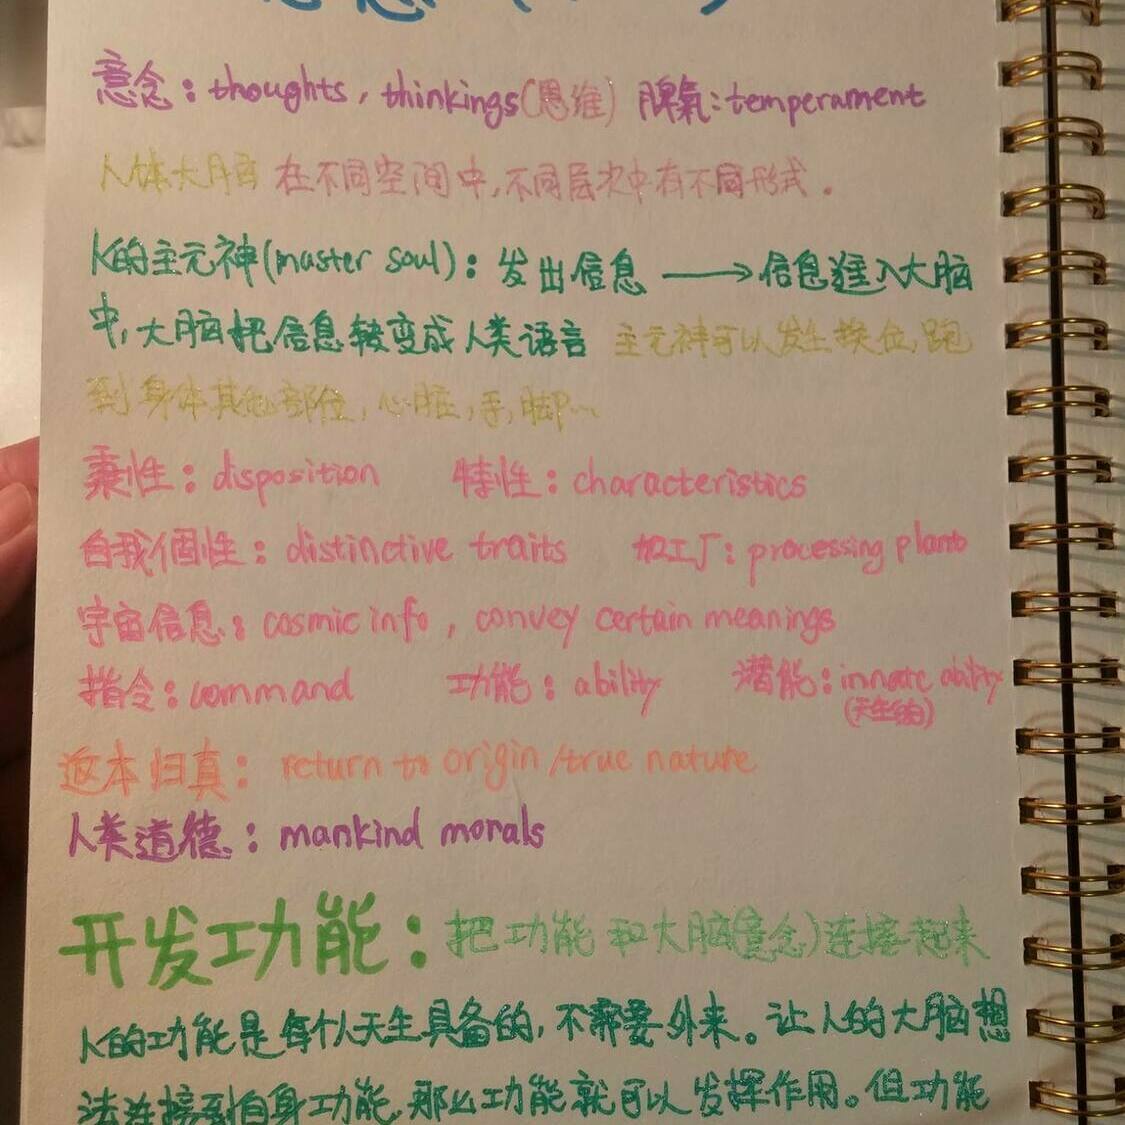 意念：thoughts, thinkings(思维) 脾氣：temperament
人体大脑 在不同空间中,不同层次中有不同形式。
人的主元神(master soul)：发出信息 ⟶ 信息進入大脑
中,大脑把信息转变成人类语言 主元神可以发生换位,跑
到身体其他部位,心脏,手,脚…
秉性：disposition 特性：characteristics
自我個性：distinctive traits 加工厂：processing plant
宇宙信息：cosmic info, convey certain meanings
指令：command 功能：ability 潜能：innate ability
(天生的)
返本归真：return to origin/true nature
人类道德：mankind morals
开发功能：把功能和大脑(意念)连接起来
人的功能是每个人天生具备的,不需要外来。让人的大脑想
法连接到自身功能,那么功能就可以发挥作用。但功能